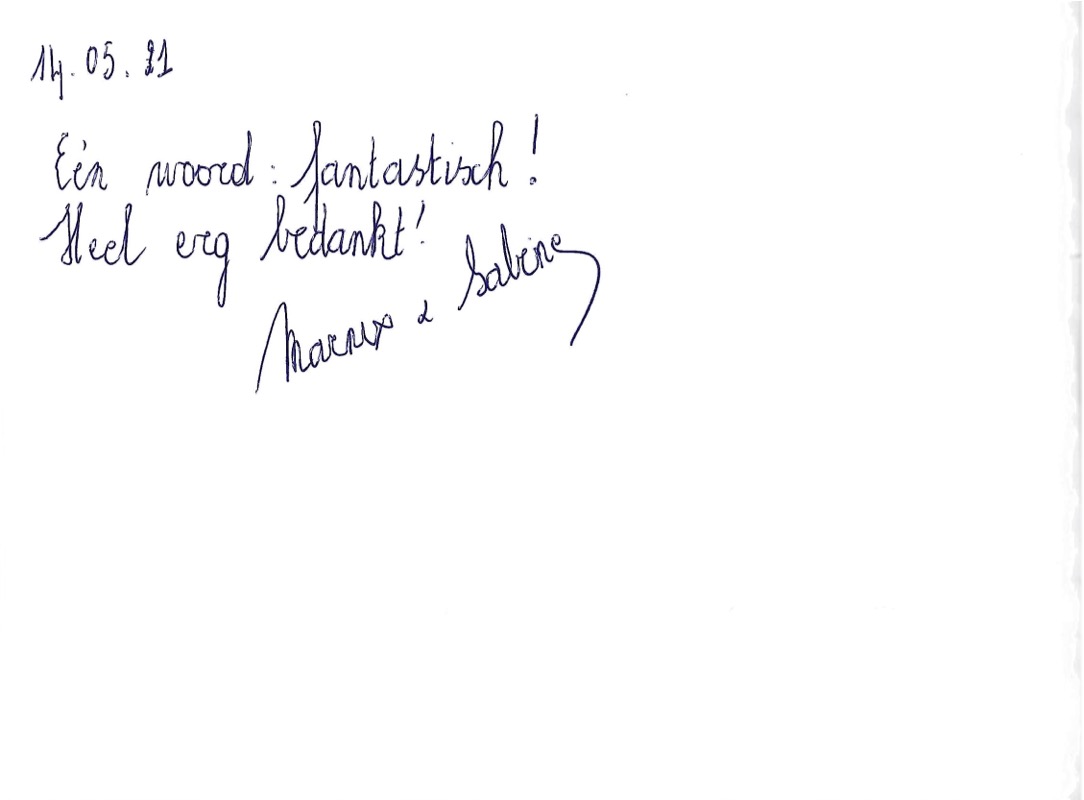 14.05.21
Eén woord: fantastisch!
Heel erg bedankt!
Marnix & Sabine